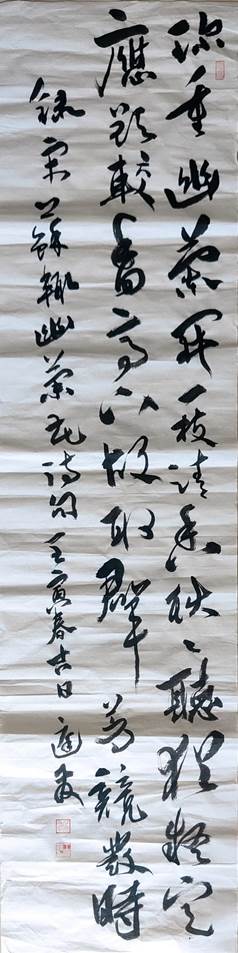 珍重幽蘭开一枝清香耿々聽猶疑定
應欲較香高下故取羣芳競發時
錄宋人蘇轍幽蘭花詩句壬寅春吉日